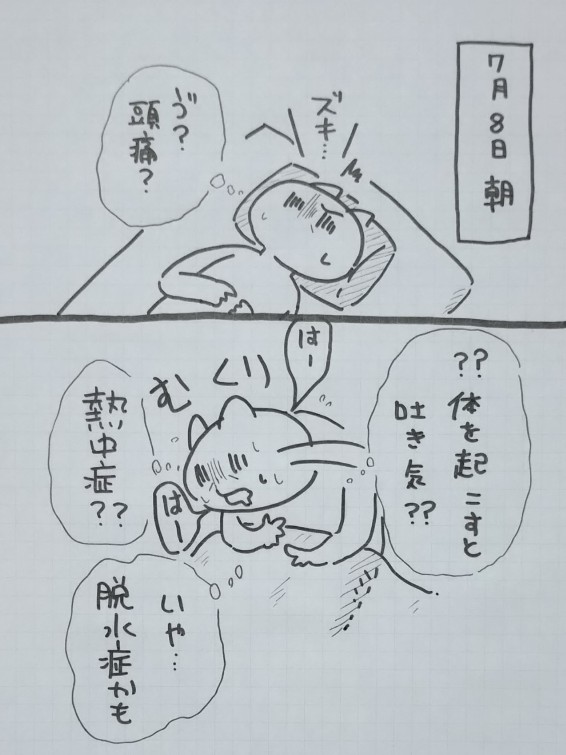 7月8日 朝
ズキ…
ゔ?
頭痛?
はー
??
体を起こすと
吐き気??
むくり
熱中症??
はー
いや…
脱水症かも